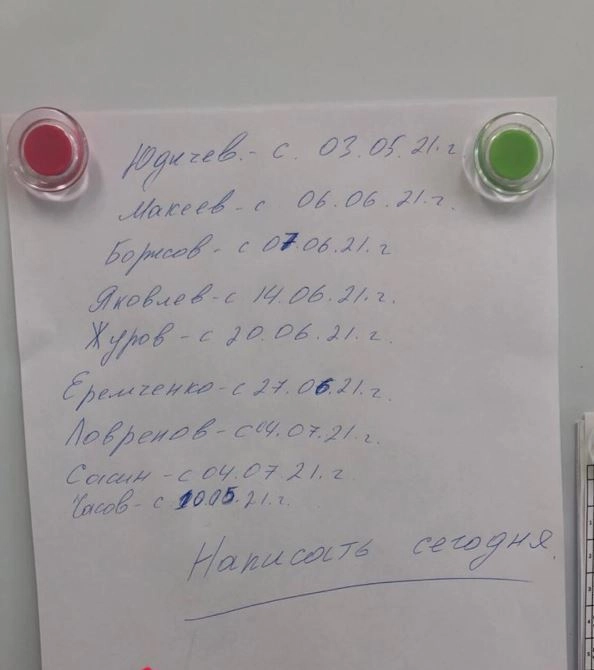 Юдичев. - с. 03.05.21.г.
Макеев - с 06.06.21.г.
Борисов - с 07.06.21.г
Яковлев - с 14.06.21.г.
Журов - с 20.06.21.г.
Еремченко - с 27.06.21.г.
Лавренов - с 04.07.21.г.
Сасин - с 04.07 21.г
Часов - с 10.05.21.г.
Написать сегодня.